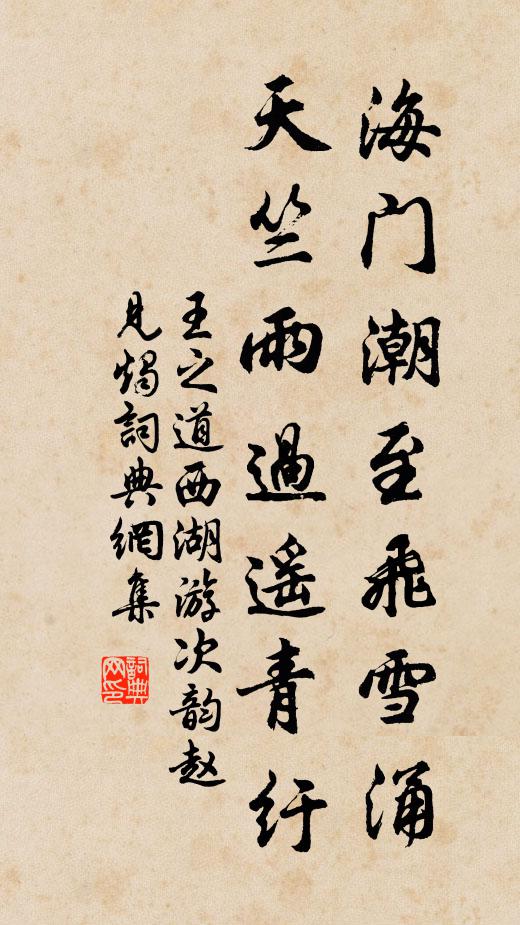 海门潮至飛雪涌
天竺雨過遥青纡
王之道西湖游次韵赵
見燭詞典網集
詞典网印